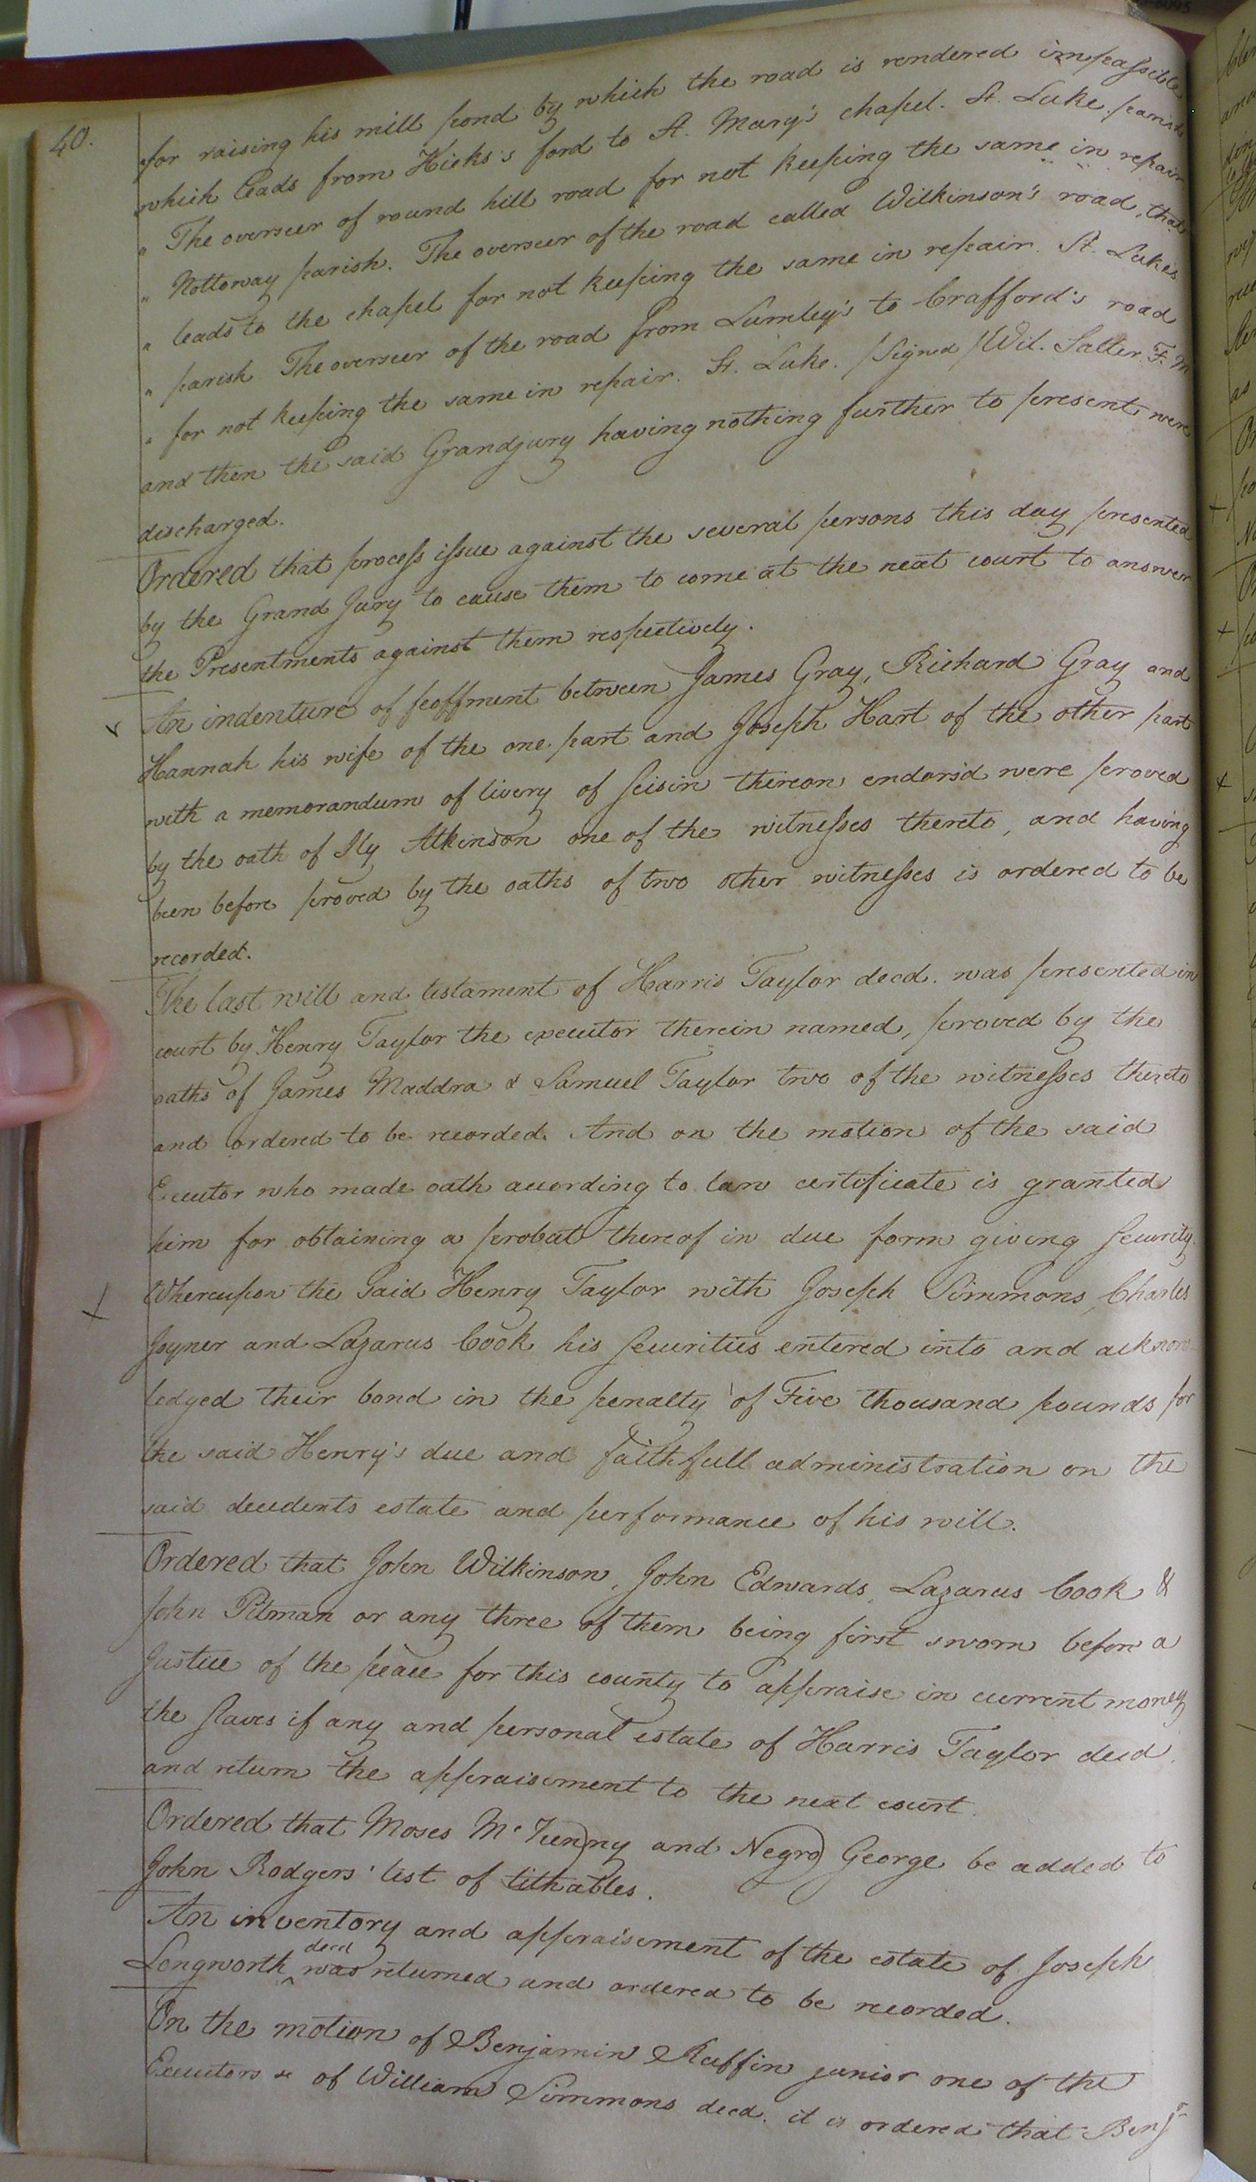 40.
for raising his mill pond by which the road is rendered impassible
which leads from Hicks's ford to St. Mary's chapel. St. Luke parish
" The overseer of round hill road for not keeping the same in repair
" Nottoway parish. The overseer of the road called Wilkinson's road, that
" leads to the chapel for not keeping the same in repair. St. Lukes
" parish The overseer of the road from Lumley's to Crafford's road
" for not keeping the same in repair. St. Luke. /Signed/ Wil. Salter. F. M
and then the said Grandjury having nothing further to present were
discharged.
Ordered that process issue against the several persons this day presented
by the Grand Jury to cause them to come at the next court to answer
the Presentments against them respectively.
An indenture of feoffment between James Gray, Richard Gray and
Hannah his wife of the one part and Joseph Hart of the other part
with a memorandum of livery of seisin thereon endorsd were proved
by the oath of Ily Atkinson one of the witnesses thereto, and having
been before proved by the oaths of two other witnesses is ordered to be
recorded.
The last will and testament of Harris Taylor decd. was presented in
court by Henry Taylor the executor therein named, proved by the
oaths of James Maddra & Samuel Taylor two of the witnesses thereto
and ordered to be recorded. And on the motion of the said
Executor who made oath according to law certificate is granted
him for obtaining a probat thereof in due form giving security.
Whereupon the said Henry Taylor with Joseph Simmons, Charles
Joyner and Lazarus Cook his securities entered into and acknow
ledged their bond in the penalty of Five thousand pounds for
the said Henry's due and faithfull administration on the
said decedents estate and performance of his will.
Ordered that John Wilkinson, John Edwards, Lazarus Cook &
John Pitman or any three of them being first sworn before a
Justice of the peace for this county to appraise in current money
the slaves if any and personal estate of Harris Taylor decd.
and return the appraisement to the next court.
Ordered that Moses and Negro George be added to
John Rodgers' list of tithables.
An inventory and appraisement of the estate of Joseph
Longworth decd was returned and ordered to be recorded.
On the motion of Benjamin Ruffin junior one of the
Executors &c of William Simmons decd. it is ordered that Benj